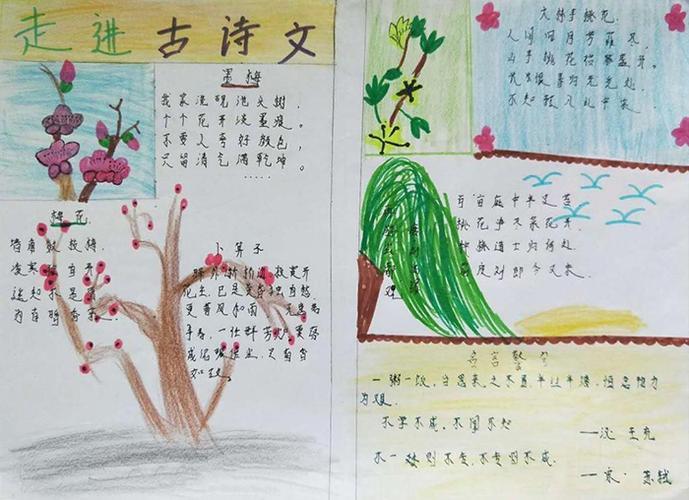 走进古诗文
墨梅
我家洗砚池头树，
个个花开淡墨痕。
不要人夸好颜色，
只留清气满乾坤。
.....
梅花
墙角数枝梅，
凌寒独自开
遥知不是雪
为有暗香来。
卜算子
驿外断桥边，寂寞开
无主。已是黄昏独自愁
更著风和雨。无意苦
争春，一任群芳妒。零落
成泥碾作尘，只有香
如故。
大林寺桃花
人间四月芳菲尽，
山寺桃花始盛开。
长恨春归无觅处
不知转入此中来。
百亩庭中半是苔
桃花净尽菜花开。
种桃道士归何处
前度刘郎今又来。
名言警句
一粥一饭，当思来之不易，半丝半缕，恒念物力
为艰。
不学不成，不问不知
——汉 王充
不一则不专，不专则不成。
——宋 苏轼